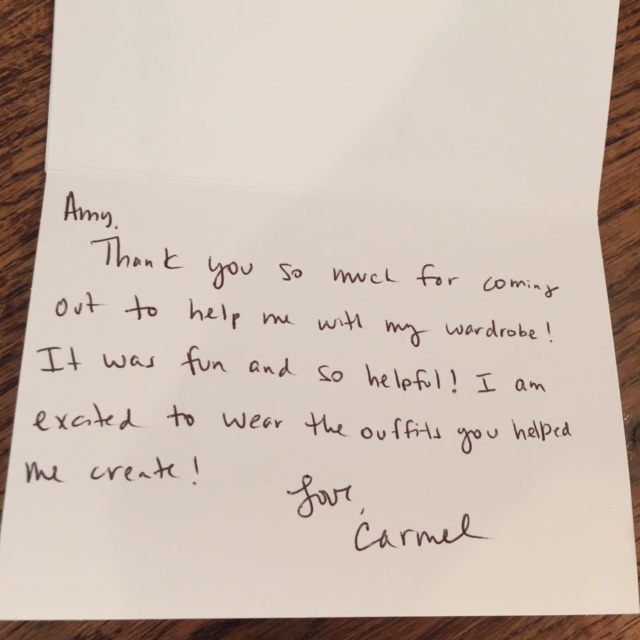 Amy,
Thank you so much for coming
out to help me with my wardrobe!
It was fun and so helpful! I am
excited to wear the outfits you helped
me create!
Love,
Carmel